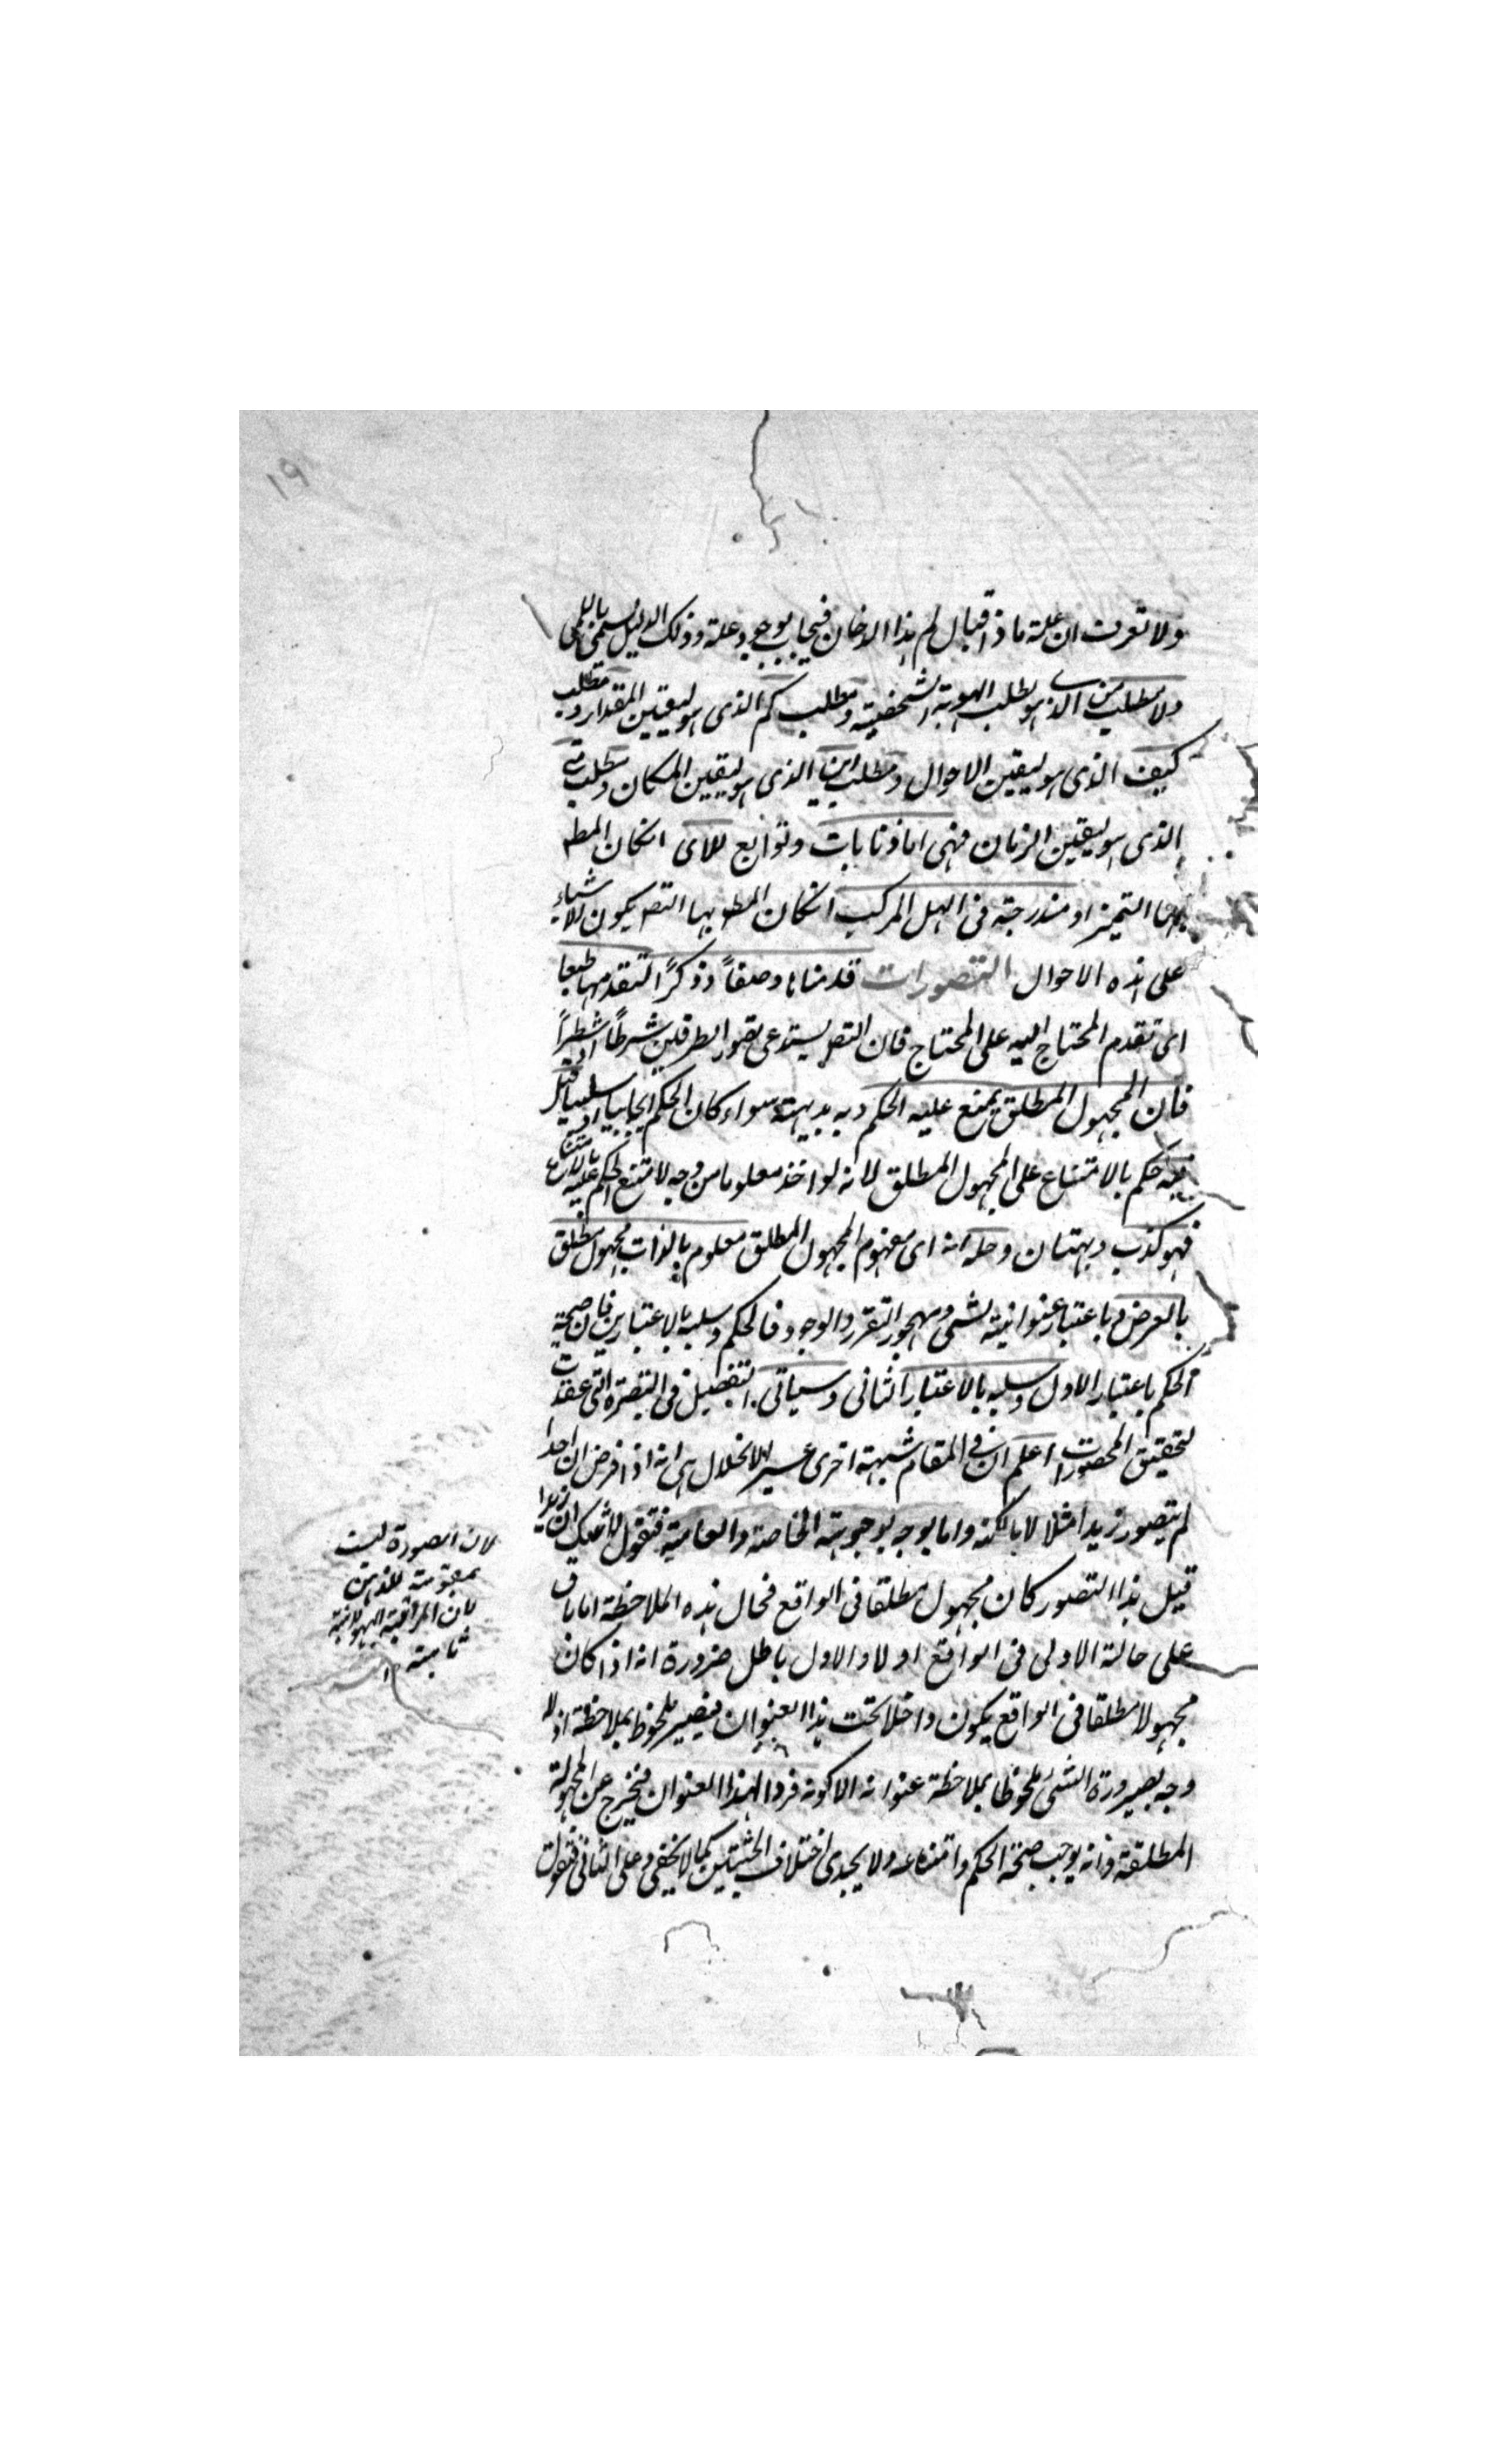 ١٩
ولا تعرف ان علة ماذا فيقال لم هذا الدخان فيجاب بوجود علة وذلك الدليل يسمى باللمى
ولا مطلب من الذى هو لطلب الهوية الشخصية ومطلب كم الذى هو ليقين المقدار ومطلب
كيف الذى هو ليقين الاحوال ومطلب اين الذى هو ليقين المكان ومطلب متى
الذى هو ليقين الزمان فهى اما ذنابات وتوابع للاى انكان المط
بها التميز او مندرجة فى الهل المركب انكان المط بها التصـ بكون الاشياء
على هذه الاحوال التصورات قدمناها وضعاً وذكرًا لتقدمها طبعا
اى تقدم المحتاج اليه على المحتاج فان التصـ يستدعى تصور الطرفين شرطًا او شطراً
فان المجهول المطلق يمتنع عليه الحكم وبه بديهة سواء كان الحكم ايجابيا او سلبيا قيل
فيه حكم بالامتناع على المجهول المطلق لانه لو اخذ معلوما من وجه لا متنع الحكم عليه بالامتناع
فهو كذب وبهتان وحله انه اى مفهوم المجهول المطلق معلوم بالذات مجهول مطلق
بالعرض باعتبار عنوانية لشى مهجور التقرر والوجود فالحكم وسلبه بالاعتبارين فان صحة
الحكم باعتبار الاول وسلبه بالاعتبار الثانى وسياتى التفصيل فى التبصرة التى عقدت
لتحقيق المحصورات اعلم ان فى المقام شبهة اخرى عسير الانحلال هى انه اذا فرض ان احدا
لم يتصور زيدا مثلا لا بالكنه واما بوجه بوجوهه الخاصة والعامية فنقول لا شك ان زيدا
قبل هذا التصور كان مجهول مطلقا فى الواقع فحال هذه الملاحظة اما باق
على حالة الاولى فى الواقع او لا والاول باطل ضرورة انه اذا كان
مجهولا مطلقا فى الواقع يكون داخلا تحت هذا العنوان فيصير ملحوظا بملاحظة اذ لا
وجه بصيرورة الشئ ملحوظا بملاحظة عنوانه الا كونه فردا لهذا العنوان فيخرج عن المجهولة
المطلقة وانه يوجب صحة الحكم وامتناعه ولا يجدى اختلاف الحيثيتين كما لا يخفى وعلى الثانى فنقول
لان الصورة ليست
بمقومة للذهن
لان المراتبة الهيولانية
ثابتة